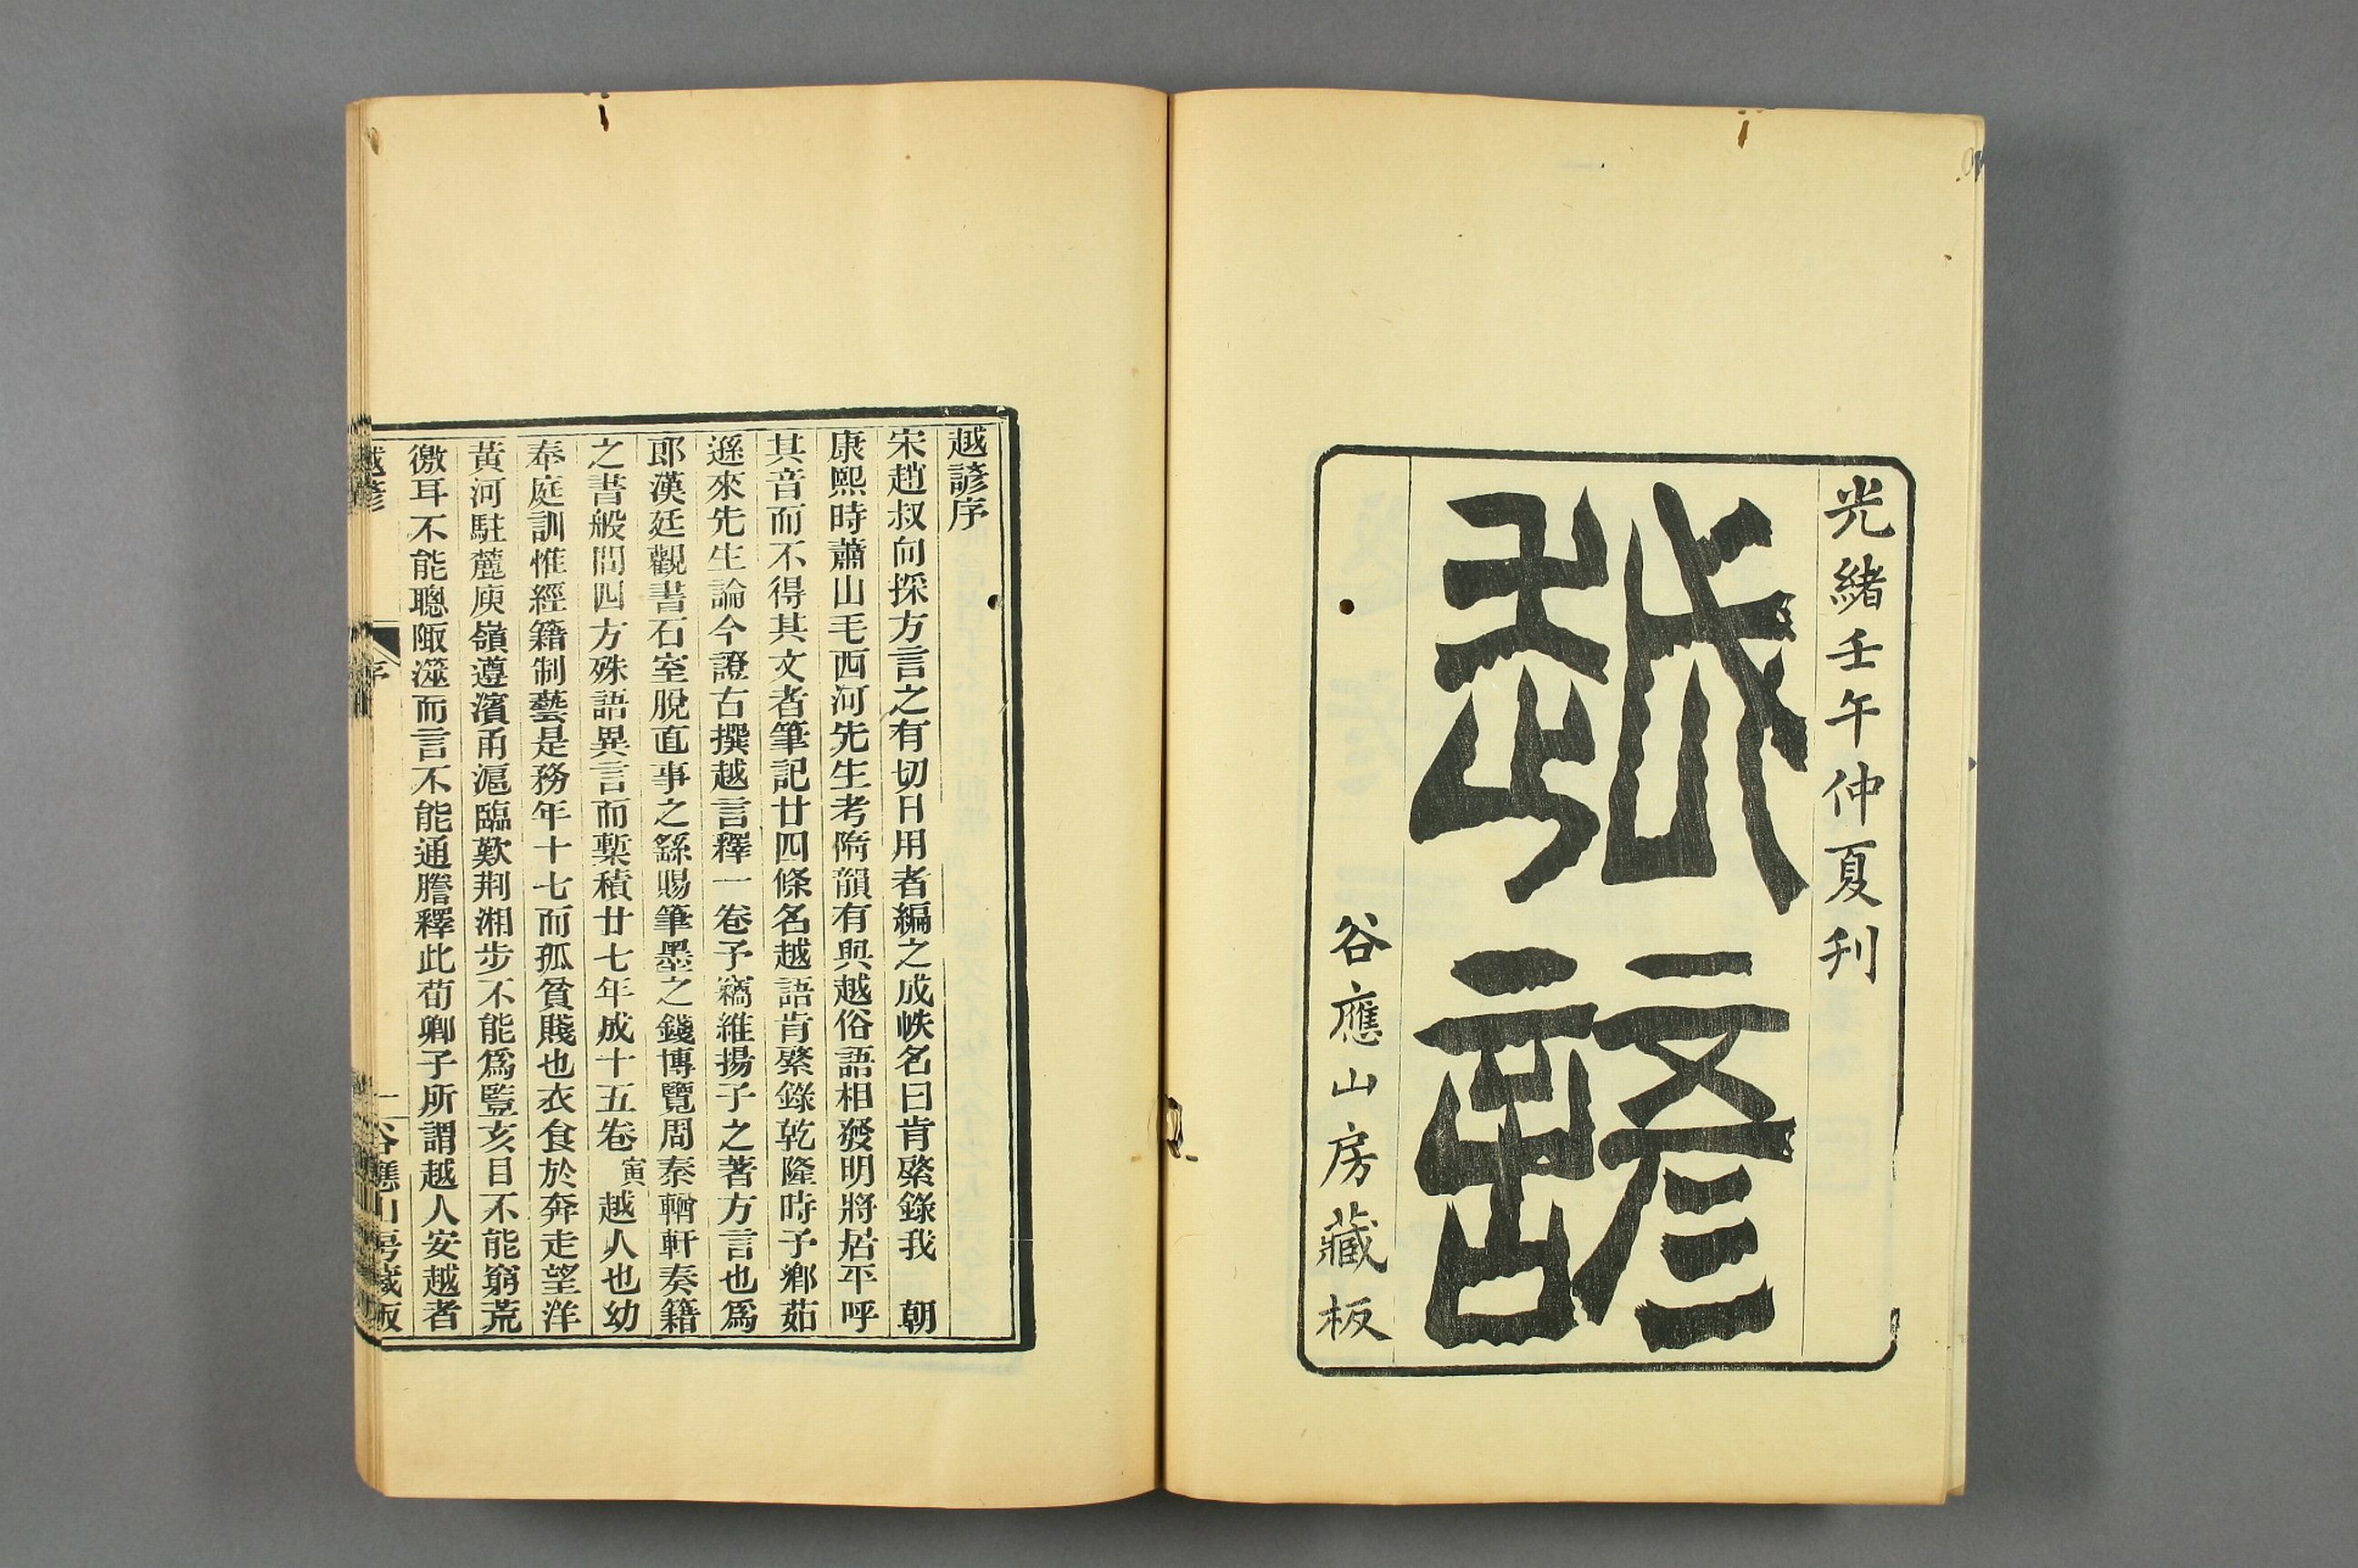 光緒壬午仲夏刊
越諺
谷應山房藏板
越諺序
宋趙叔向採方言之有切日用者編之成帙名曰肯綮錄我　朝
康熙時蕭山毛西河先生考隋韻有與越俗語相發明將居平呼
其音而不得其文者筆記廿四條名越語肯綮錄乾隆時予鄕茹
遜來先生論今證古撰越言釋一卷予竊維揚子之著方言也爲
郎漢廷觀書石室脫直事之繇賜筆墨之錢博覽周秦輶軒奏籍
之書般問四方殊語異言而槧積廿七年成十五卷寅越人也幼
奉庭訓惟經籍制藝是務年十七而孤貧賤也衣食於奔走望洋
黃河駐麓庾嶺遵濱甬滬臨歎荆湘步不能爲豎亥目不能窮荒
徼耳不能聰陬澨而言不能通謄釋此荀卿子所謂越人安越者
越諺
序
一
谷應山房藏板